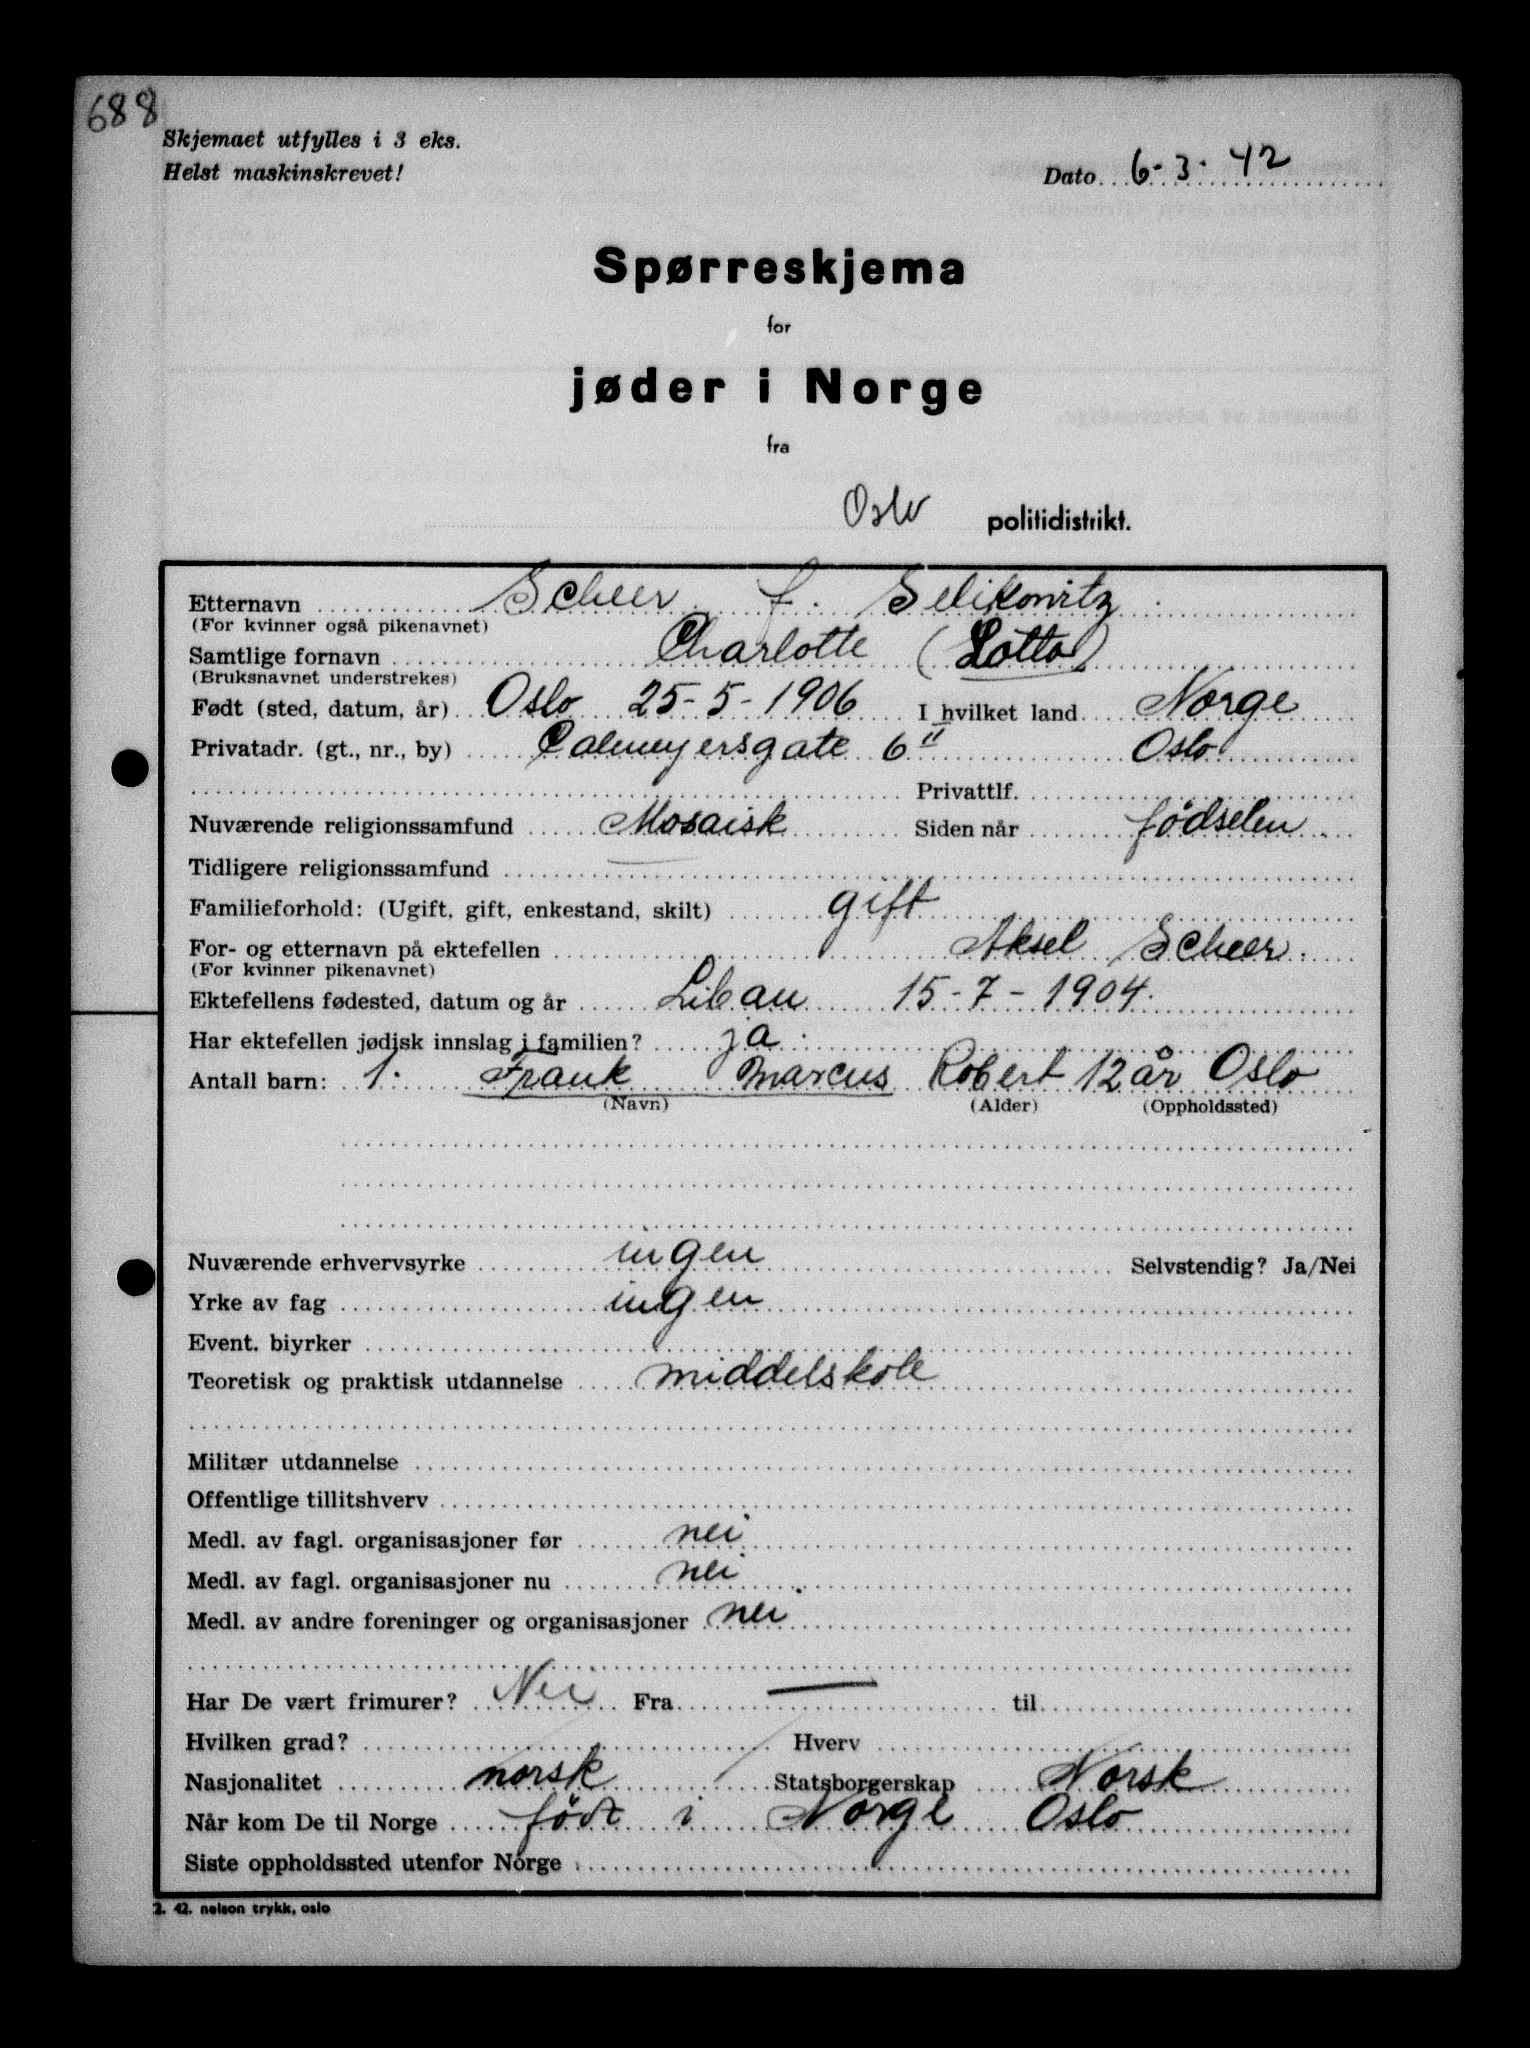 688
Skjemaet utfylles i 3 eks.
Helst maskinskrevet!
Dato 6-3-42
Spørreskjema
for
jøder i Norge
fra
Oslo politidistrikt.
Etternavn Scheer f. Selikowitz
(For kvinner også pikenavnet)
Samtlige fornavn Charlotte (Lotta)
(Bruksnavnet understrekes)
Født (sted, datum, år) Oslo 25-5-1906 I hvilket land Norge
Privatadr. (gt., nr., by) Calmeyersgate 6 II Oslo
Privattlf.
Nuværende religionssamfund Mosaisk Siden når fødselen
Tidligere religionssamfund
Familieforhold: (Ugift, gift, enkestand, skilt) gift
For- og etternavn på ektefellen Aksel Scheer.
(For kvinner pikenavnet)
Ektefellens fødested, datum og år Libau 15-7-1904.
Har ektefellen jødisk innslag i familien? ja
Antall barn: 1. Frank Marcus Robert 12 år Oslo
(Navn) (Alder) (Oppholdssted)
Nuværende erhvervsyrke ingen Selvstendig? Ja/Nei
Yrke av fag ingen
Event. biyrker
Teoretisk og praktisk utdannelse middelskole
Militær utdannelse
Offentlige tillitshverv
Medl. av fagl. organisasjoner før nei
Medl. av fagl. organisasjoner nu nei
Medl. av andre foreninger og organisasjoner nei
Har De vært frimurer? Nei Fra — til
Hvilken grad? Hverv
Nasjonalitet norsk Statsborgerskap Norsk
Når kom De til Norge født i Norge Oslo
Siste oppholdssted utenfor Norge
2. 42. nelson trykk, oslo